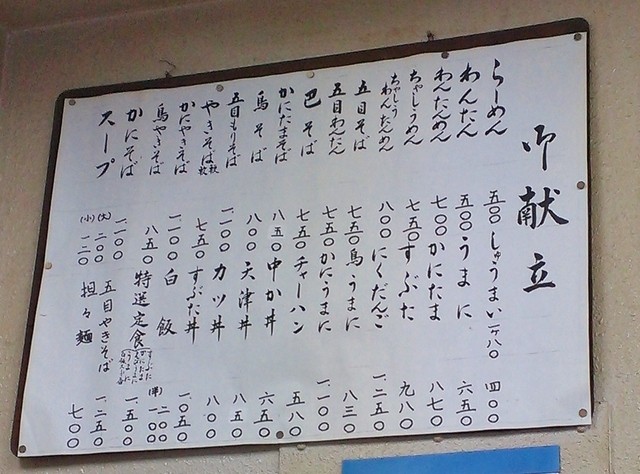 御献立
らーめん 五〇〇
わんたん 五〇〇
わんたんめん 七〇〇
ちゃしうめん 七五〇
ちゃしうわんたんめん 八〇〇
五目そば 七五〇
五目わんたん 七五〇
巴そば 七五〇
かにたまそば 八五〇
馬そば 八〇〇
五目もりそば 一一〇〇
やきそば 七五〇
かにやきそば 一一〇〇
馬やきそば 八五〇
かにそば 一一〇〇
スープ (大) 二〇〇
(小) 一二〇
しゅうまい 一ヶ八〇 四〇〇
うまに 六五〇
かにたま 八七〇
すぶた 九八〇
にくだんご 一二五〇
馬うまに 八三〇
かにうまに 一一〇〇
チャーハン 五八〇
中か丼 六五〇
天津丼 八五〇
カツ丼 八〇〇
すぶた丼 一〇五〇
白飯 二〇〇
(半) 一〇〇
特選定食 一五〇〇
五目やきそば 一二五〇
担々麺 七〇〇